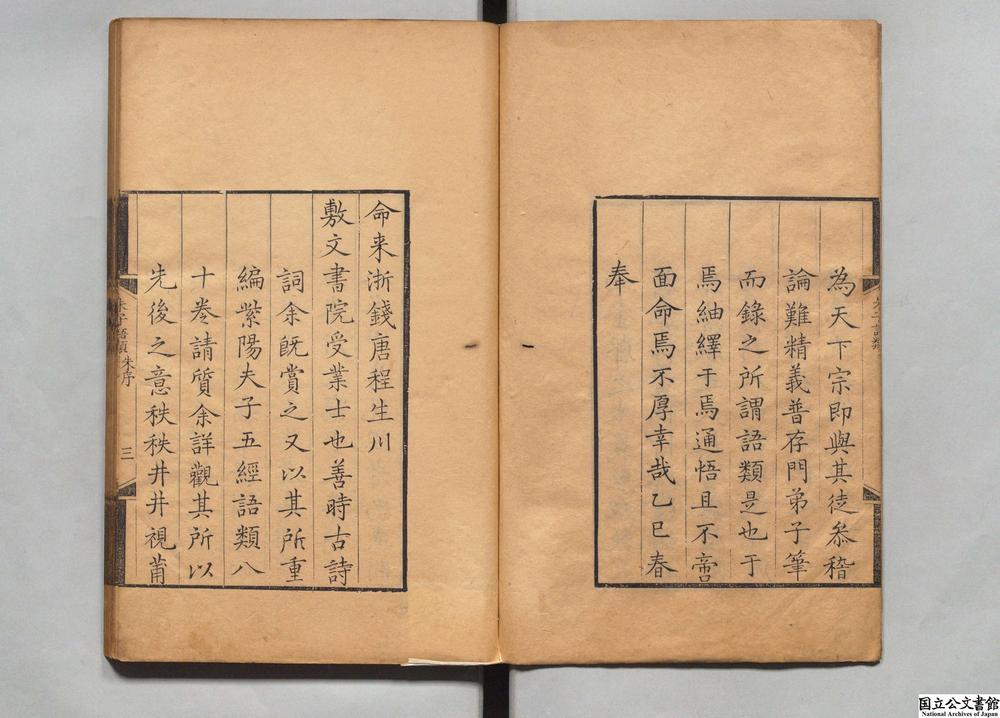 為天下宗即與其徒叅稽
論難精義普存門弟子筆
而錄之所謂語類是也于
焉紬繹于焉通悟且不啻
面命焉不厚幸哉乙巳春
奉
命来浙錢唐程生川
敷文書院受業士也善時古詩
詞余既賞之又以其所重
編紫陽夫子五經語類八
十卷請質余詳觀其所以
先後之意秩秩井井視莆
朱子語類 朱序
三
国立公文書館
National Archives of Japan